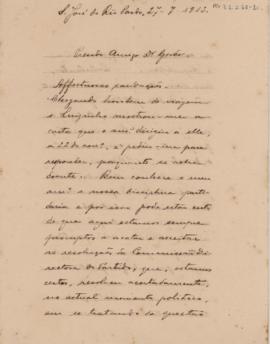 S. José do Rio Pardo, 27-7 1913.
Presado Amigo Dr
Affectuosas saudações.
Chegando hontem de viagem
o Luizinho mostrou-me a
carta que o amº dirigiu a elle,
a 22 do corrº, e pediu-me para
responder, porquanto se acha
doente. Bem conhece o meu
amº a nossa disciplina parti-
daria e por isso pode estar certo
de que aqui estamos sempre
promptos a acatar e acceitar
as resoluções da Commissão Di-
rectora do Partido, que, estamos
certos, resolverá acertadamente,
no actual momento politico,
em se tratando da questão